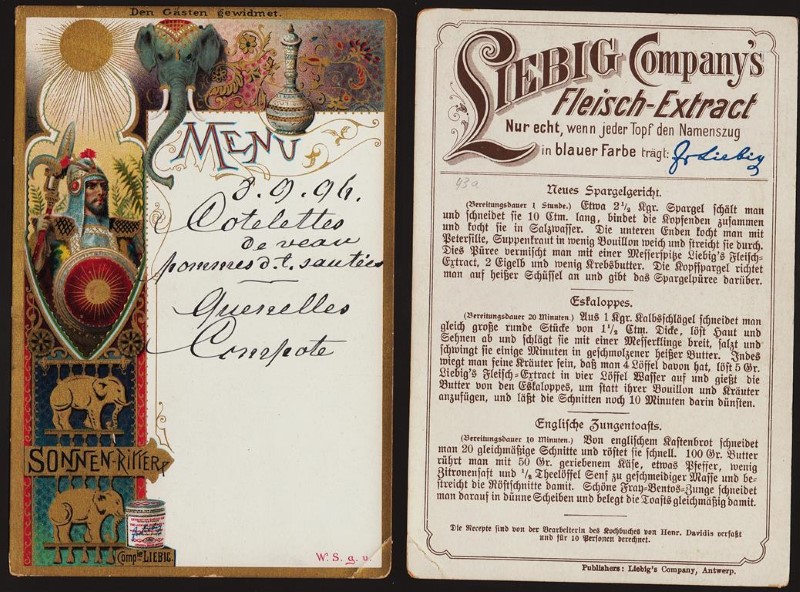 Den Gästen gewidmet.
MENU
8.9.94.
Cotelettes
de veau
pommes d. t. sautées
Quenelles
Compote
SONNEN-RITTER
Compie LIEBIG.
W. S. g. u.
LIEBIG Company's
Fleisch-Extract
Nur echt, wenn jeder Topf den Namenszug
in blauer Farbe trägt: J v Liebig
43a
Neues Spargelgericht.
(Bereitungsdauer 1 Stunde.) Etwa 2½ Kgr. Spargel schält man
und schneidet sie 10 Ctm. lang, bindet die Kopfenden zusammen
und kocht sie in Salzwasser. Die unteren Enden kocht man mit
Petersilie, Suppenkraut in wenig Bouillon weich und streicht sie durch.
Dies Püree vermischt man mit einer Messerspitze Liebig's Fleisch-
Extract, 2 Eigelb und wenig Krebsbutter. Die Kopfspargel richtet
man auf heißer Schüssel an und gibt das Spargelpüree darüber.
Eskaloppes.
(Bereitungsdauer 20 Minuten.) Aus 1 Kgr. Kalbschlägel schneidet man
gleich große runde Stücke von 1½ Ctm. Dicke, löst Haut und
Sehnen ab und schlägt sie mit einer Messerklinge breit, salzt und
schwingt sie einige Minuten in geschmolzener heißer Butter. Indes
wiegt man feine Kräuter fein, daß man 4 Löffel davon hat, löst 5 Gr.
Liebig's Fleisch-Extract in vier Löffel Wasser auf und gießt die
Butter von den Eskaloppes, um statt ihrer Bouillon und Kräuter
anzufügen, und läßt die Schnitten noch 10 Minuten darin dünsten.
Englische Zungentoasts.
(Bereitungsdauer 10 Minuten.) Von englischem Kastenbrot schneidet
man 20 gleichmäßige Schnitte und röstet sie schnell. 100 Gr. Butter
rührt man mit 50 Gr. geriebenem Käse, etwas Pfeffer, wenig
Zitronensaft und ½ Theelöffel Senf zu geschmeidiger Masse und be-
streicht die Röstschnitte damit. Schöne Fray-Bentos-Zunge schneidet
man darauf in dünne Scheiben und belegt die Toasts gleichmäßig damit.
Die Recepte sind von der Bearbeiterin des Kochbuches von Henr. Davidis verfaßt
und für 10 Personen berechnet.
Publishers: Liebig's Company, Antwerp.